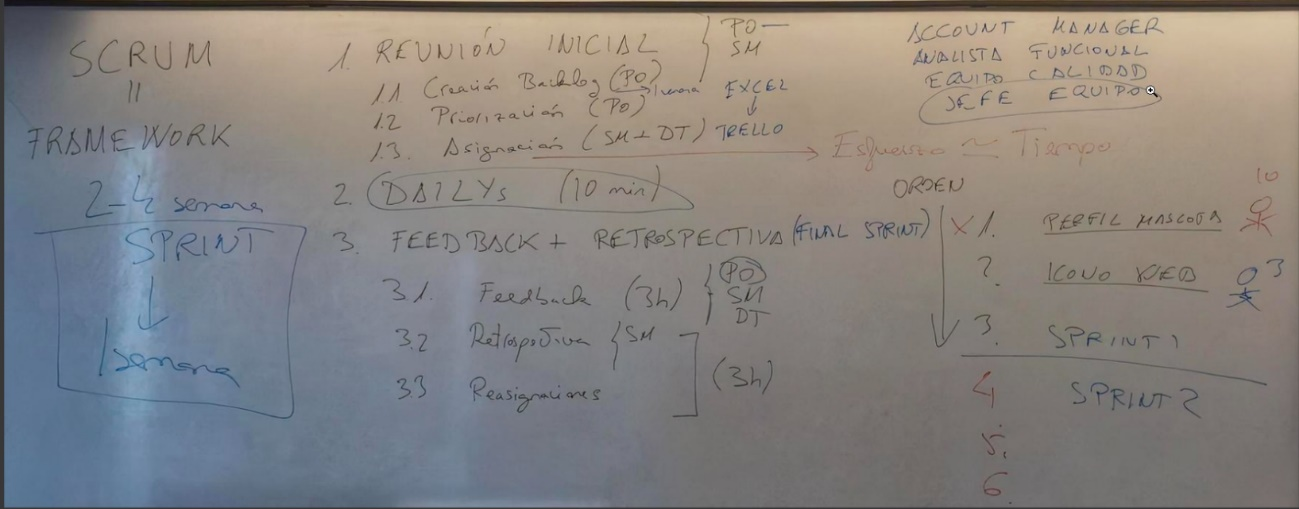 SCRUM
"
FRAMEWORK
2-4 semana
SPRINT
1 semana
1. REUNIÓN INICIAL
PO
SM
1.1 Creación Backlog (PO)
EXCEL
1.2 Priorización (PO)
1.3. Asignación (SM + DT) TRELLO
Esfuerzo ≃ Tiempo
2. DAILYs (10 min)
3. FEEDBACK + RETROSPECTIVA (FINAL SPRINT)
3.1. Feedback (3h)
PO
SM
DT
3.2 Retrospectiva SM
3.3 Reasignaciones
(3h)
ACCOUNT MANAGER
ANALISTA FUNCIONAL
EQUIPO CALIDAD
JEFE EQUIPO
ORDEN
X 1. PERFIL MASCOTA 10
2. ICONO WEB 3
3. SPRINT 1
4 SPRINT 2
5.
6.